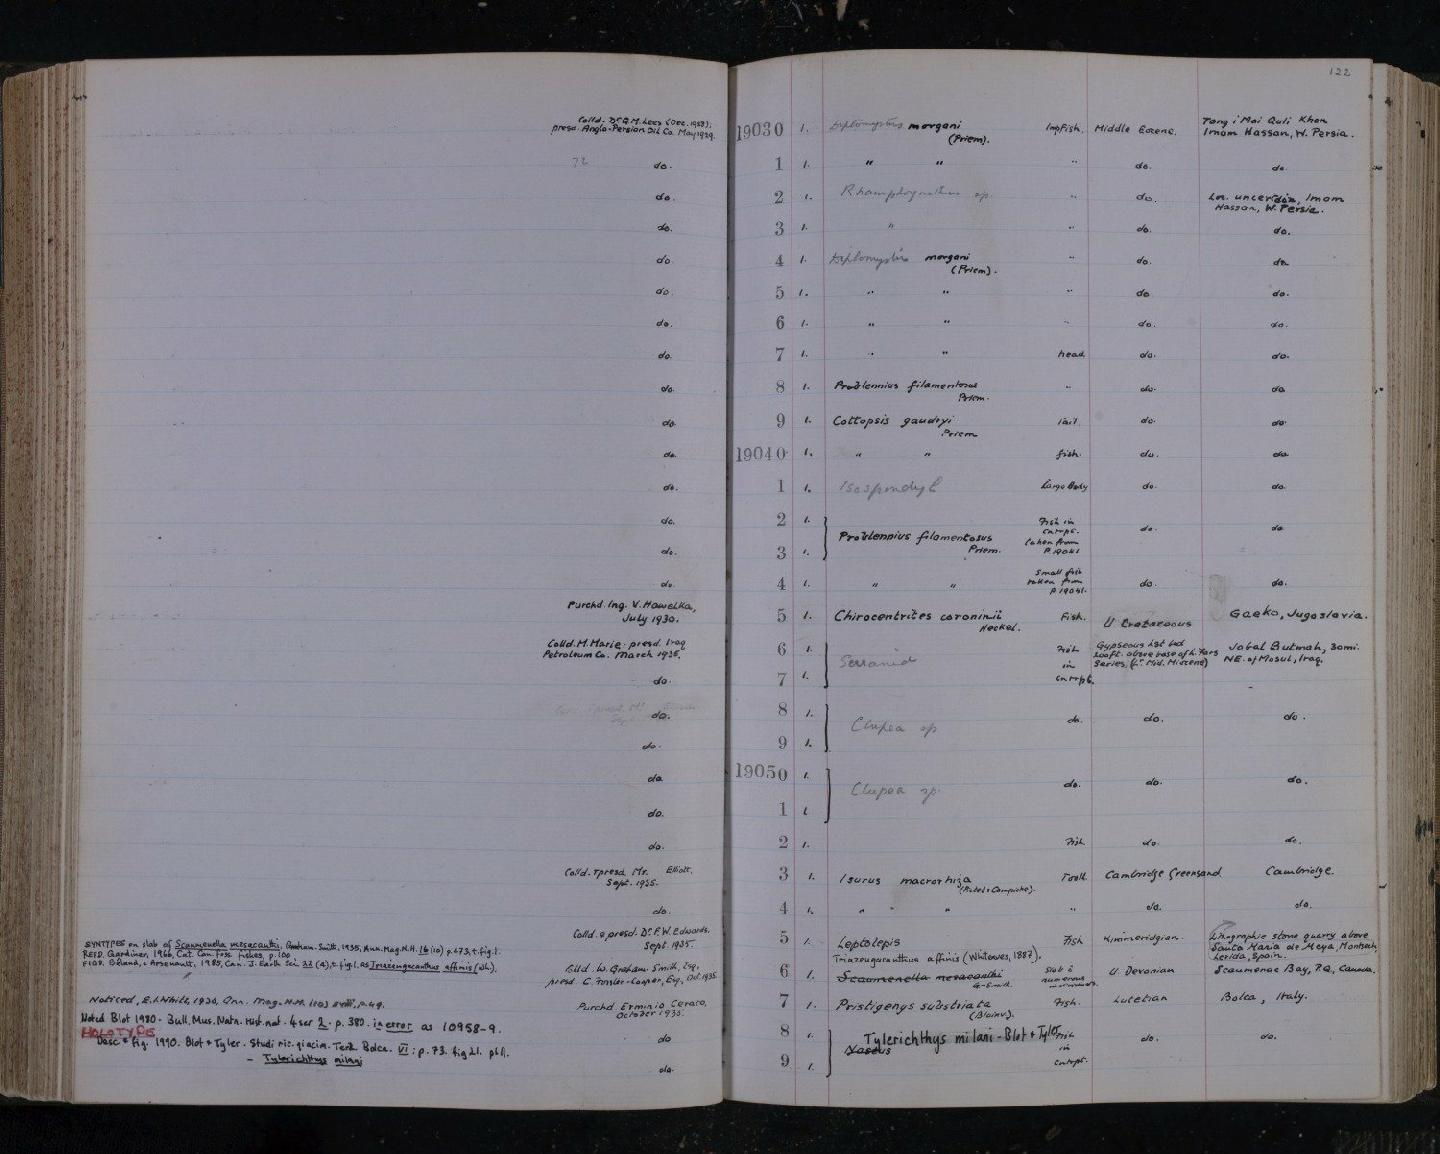 122
Colld. Dr G.M. Lees (Dec. 1928);
presd. Anglo-Persian Oil Co. May 1929.
19030 1. Diplomystus morgani (Priem). Impfish. Middle Eocene. Tang i Mai Quli Khan
Imam Hassan, W. Persia.
do. 1 1. " " " do. do.
do. 2 1. Rhamphognathus sp. " do. Loc. uncertain, Imam
Hassan, W. Persia.
do. 3 1. " " do. do.
do. 4 1. Diplomystus morgani (Priem). " do. do.
do. 5 1. " " " do. do.
do. 6 1. " " " do. do.
do. 7 1. " " head. do. do.
do. 8 1. Problennius filamentosus Priem. " do. do.
do. 9 1. Cottopsis gaudryi Priem tail. do. do.
do. 19040 1. " " fish. do. do.
do. 1 1. Isospondyl Large Body do. do.
do. 2 1. Problennius filamentosus Priem. Fish in cntrpt. taken from P.19041 do. do.
do. 3 1.
do. 4 1. " " Small fish taken from P.19041. do. do.
Purchd. Ing. V. Hawelka,
July 1930.
5 1. Chirocentrites coroninii Heckel. Fish. U Cretaceous Gaeko, Jugoslavia.
Colld. M. Marie. presd. Iraq
Petroleum Co. March 1935.
6 1. Serranid Fish in cntrpt. Gypseous lst bed
above base of L. Fars
Series, (L. Mid. Miocene) Jabal Butmah, 30mi.
NE. of Mosul, Iraq.
do. 7 1.
do. 8 1. Clupea sp do. do. do.
do. 9 1.
do. 19050 1. Clupea sp. do. do. do.
do. 1 1.
do. 2 1. Fish. do. do.
Colld. & presd. Mr. Elliott.
Sept. 1935.
3 1. Isurus macrorhiza (Pictet & Campiche). Tooth Cambridge Greensand Cambridge.
do. 4 1. " " " do. do.
Colld. & presd. Dr. F.W. Edwards.
Sept. 1935.
5 1. Leptolepis Fish Kimmeridgian. Lithographic stone quarry above
Santa Maria de Meya, Montsech
Lerida, Spain.
SYNTYPES on slab of Scaumenella mesacanthi, Graham-Smith, 1935, Ann. Mag. N.H. 16 (10) p.473, t. fig.1.
REFD. Gardiner, 1966, Cat. Can. foss. fishes, p.100
FIGD. Béland & Arsenault, 1985, Can. J. Earth Sci 22 (4), t. fig.1. as Triazeugacanthus affinis (Wh).
Colld. W. Graham-Smith, Esq.,
presd. C. Forster-Cooper, Esq., Oct. 1935
6 1. Triazeugacanthus affinis (Whiteaves, 1887).
Scaumenella mesacanthi G-Smith Slab c numerous U. Devonian Scaumenac Bay, P.Q., Canada.
Noticed, E.I. White, 1936, Ann. Mag. N.H. (10) xviii, p.49.
Purchd Erminio Cerato,
October 1935.
7 1. Pristigenys substriata (Blainv). Fish. Lutetian Bolca, Italy.
Noted Blot 1980. Bull. Mus. Natn. Hist. nat. 4 ser 2. p. 380. in error as 10958-9.
HOLOTYPE
Desc & fig. 1990. Blot & Tyler. Studi ric. giacim. Terz. Bolca. VI: p. 73. fig 21. pl 1.
- Tylerichthys milani
do 8 1. Tylerichthys milani - Blot & Tyler
Naseus Fish in cntrpt. do. do.
do. 9 1.